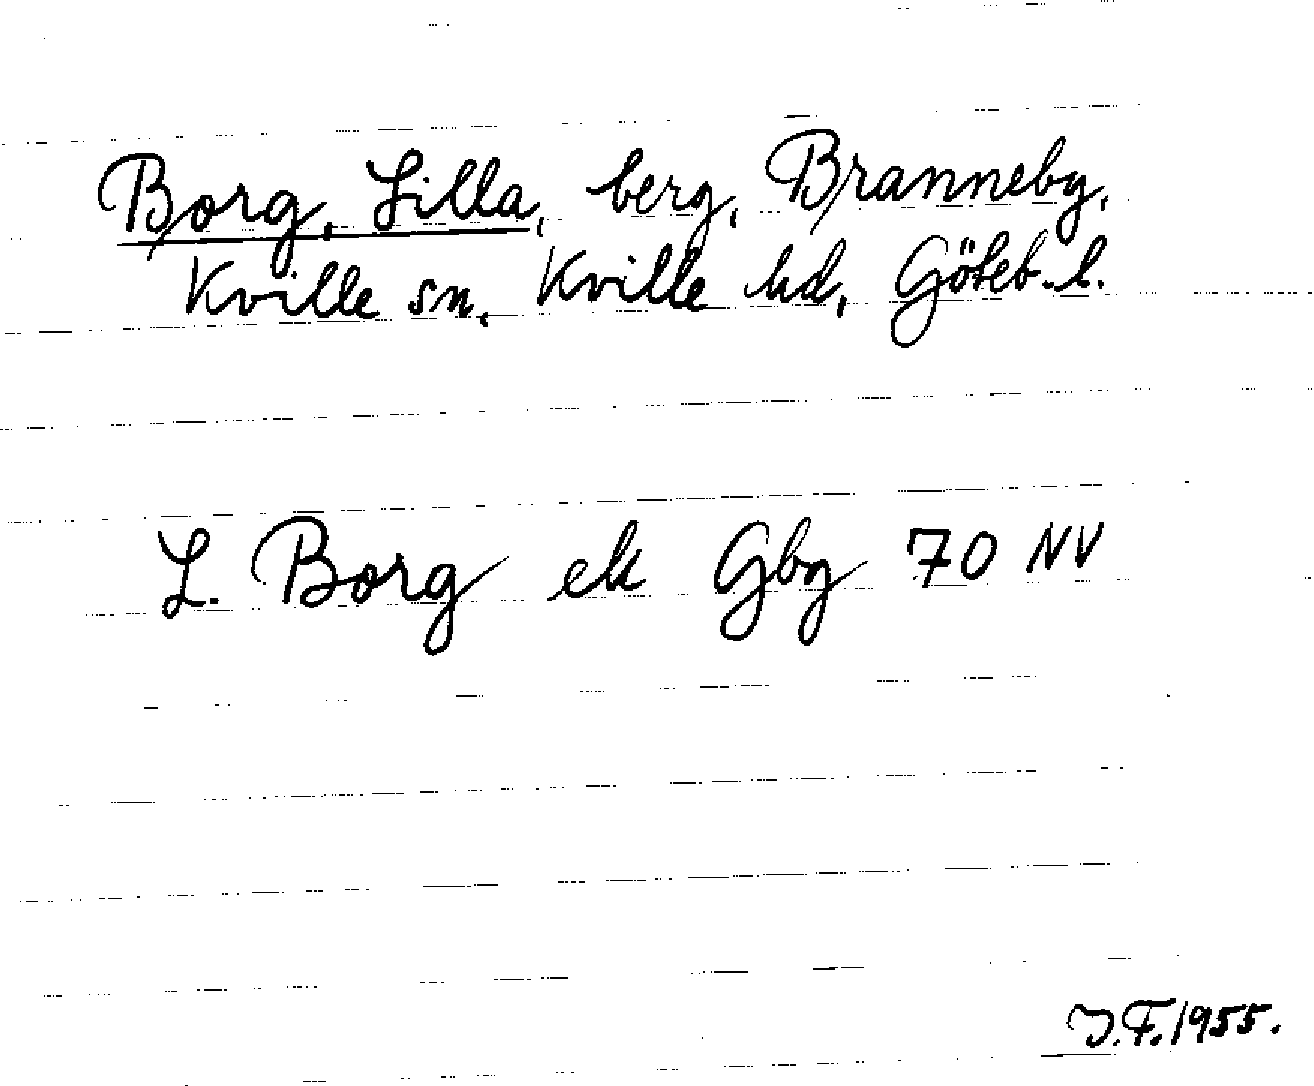 Borg, Lilla, berg, Branneby,
Kville sn, Kville hd, Göteb. l.
L. Borg ek Gbg 70 NV
J.F. 1955.